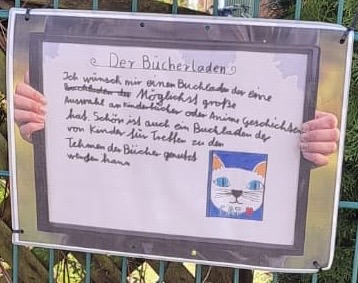 Der Bücherladen
Ich wünsch mir einen Buchladen der eine
Möglichst große
Auswahl an Kinderbücher oder Anime Geschichten
hat. Schön ist auch ein Buchladen der
von Kinder für Treffen zu den
Tehmen der Bücher genutzt
werden kann